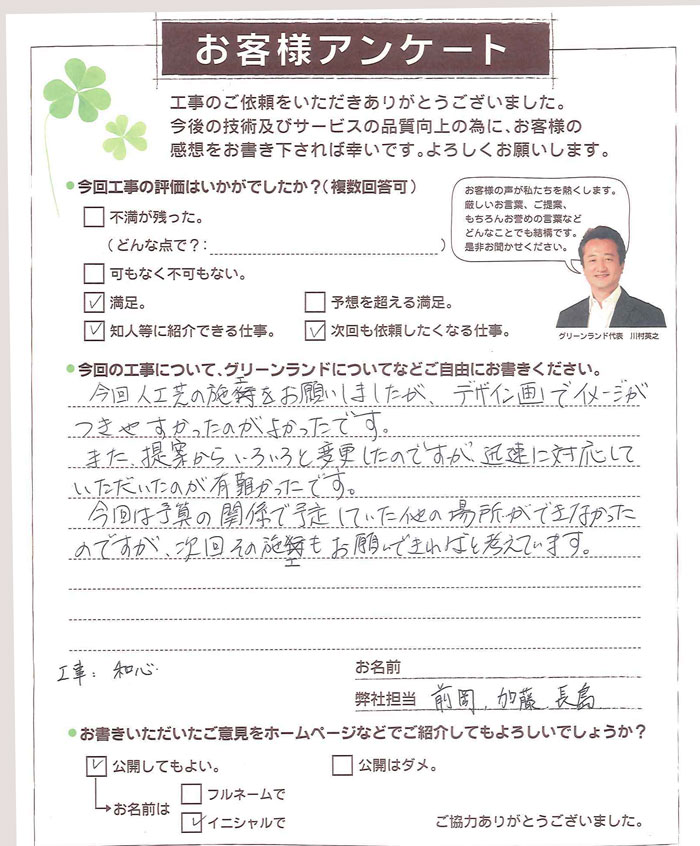 お客様アンケート
工事のご依頼をいただきありがとうございました。
今後の技術及びサービスの品質向上の為に、お客様の
感想をお書き下されば幸いです。よろしくお願いします。
●今回工事の評価はいかがでしたか？（複数回答可）
不満が残った。
（どんな点で？：　）
可もなく不可もない。
満足。
予想を超える満足。
知人等に紹介できる仕事。
次回も依頼したくなる仕事。
お客様の声が私たちを熱くします。
厳しいお言葉、ご提案、
もちろんお誉めの言葉など
どんなことでも結構です。
是非お聞かせください。
グリーンランド代表　川村英之
●今回の工事について、グリーンランドについてなどご自由にお書きください。
今回人工芝の施工をお願いしましたが、デザイン画でイメージが
つきやすかったのがよかったです。
また、提案からいろいろと変更したのですが、迅速に対応して
いただいたのが有難かったです。
今回は予算の関係で予定していた他の場所ができなかった
のですが、次回その施工もお願いできればと考えています。
工事：和心
お名前
弊社担当　前岡、加藤、長島
●お書きいただいたご意見をホームページなどでご紹介してもよろしいでしょうか？
公開してもよい。
公開はダメ。
お名前は
フルネームで
イニシャルで
ご協力ありがとうございました。